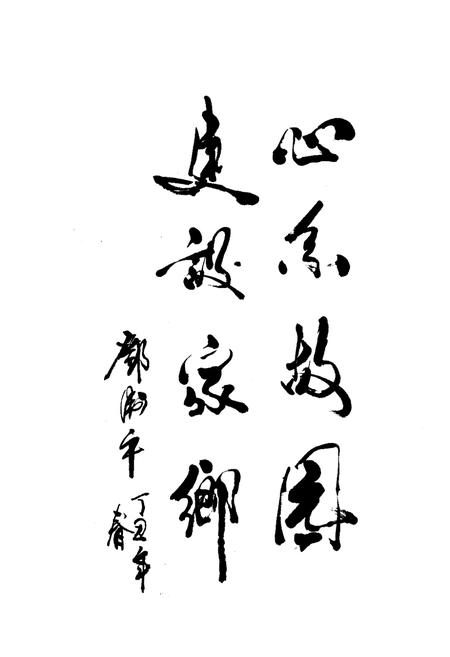 心系故園
建設家鄉
鄧
平
丁丑年
春